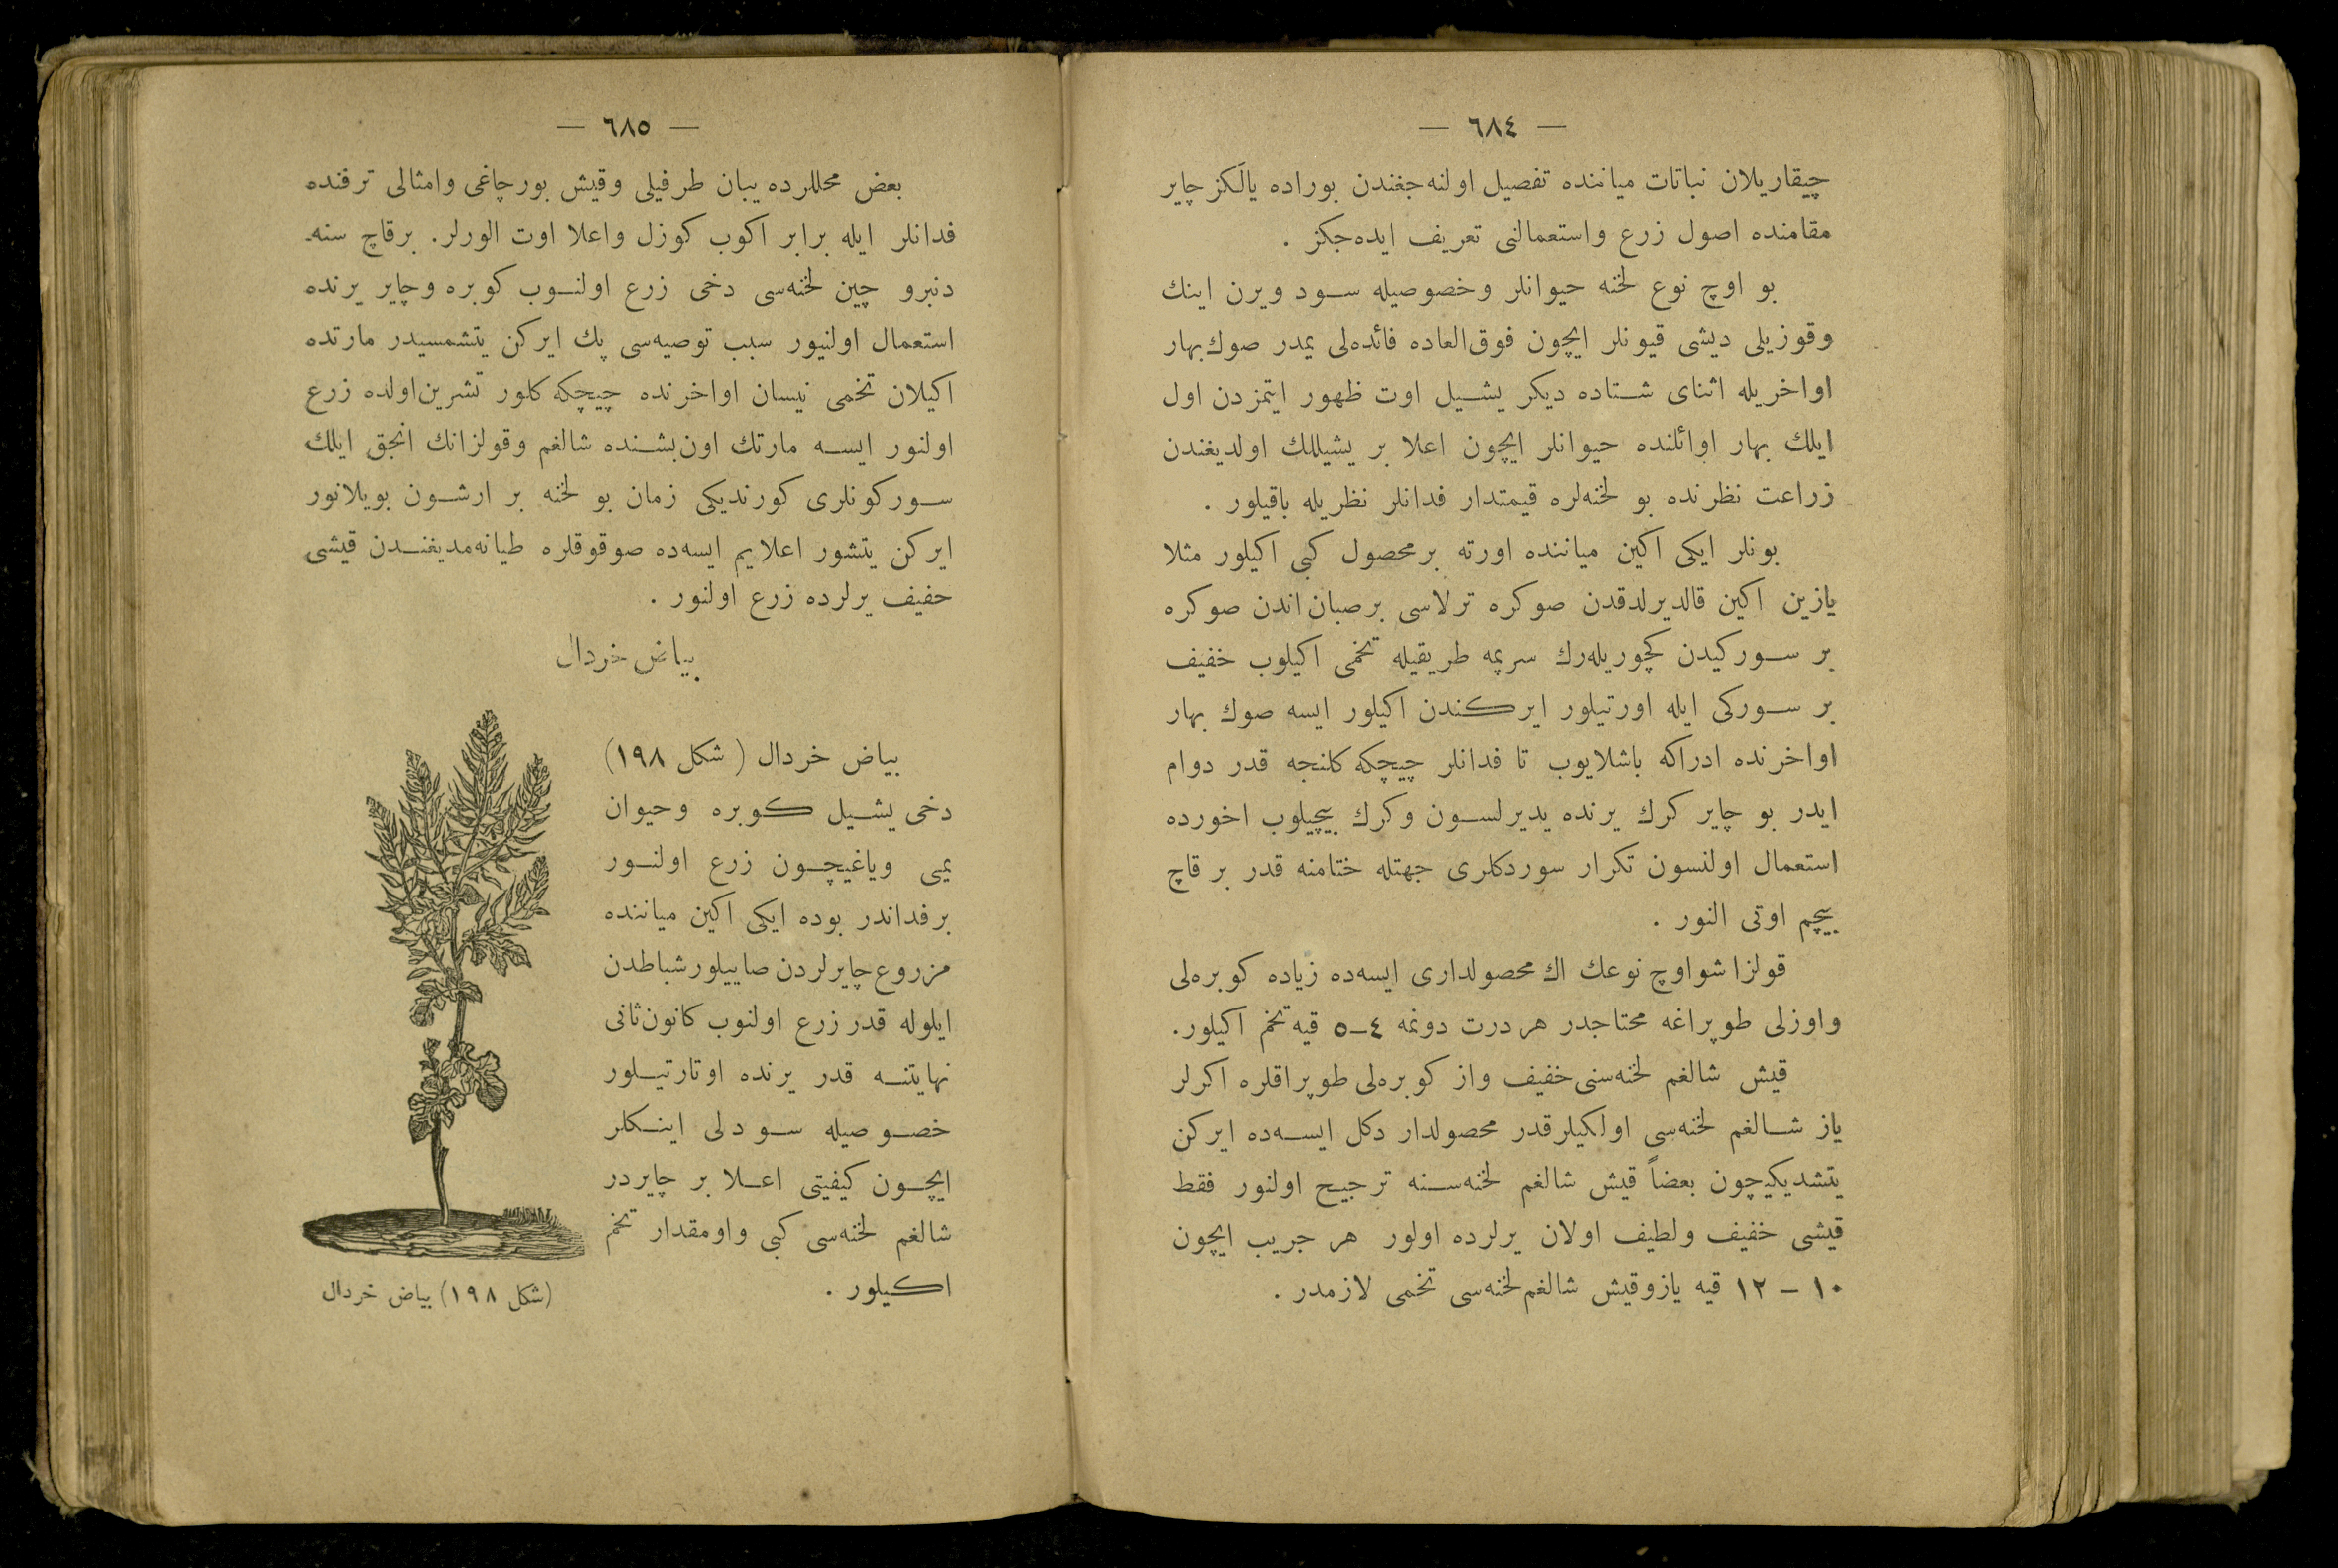 — ٦٨٤ —
چیقاریلان نباتات میاننده تفصیل اولنه‌جغندن بوراده یالکز چایر
مقامنده اصول زرع واستعمالنی تعریف ایده‌جکز .
بو اوچ نوع لخنه حیوانلر وخصوصیله سـود ویرن اینك
وقوزیلی دیشی قیونلر ایچون فوق‌العاده فائده‌لی یمدر صوك‌بهار
اواخریله اثنای شـتاده دیكر یشـیل اوت ظهور ایتمزدن اول
ایلك بهار اوائلنده حیوانلر ایچون اعلا بر یشیللك اولدیغندن
زراعت نظرنده بو لخنه‌لره قیمتدار فدانلر نظریله باقیلور .
بونلر ایکی اکین میاننده اورته برمحصول کبی اکیلور مثلا
یازین اکین قالدیرلدقدن صوکره ترلاسی برصبان‌اندن صوکره
بر سـورکیدن کچوریله‌رك سرپمه طریقیله تخمی اکیلوب خفیف
بر سـورکی ایله اورتیلور ایرکندن اکیلور ایسه صوك بهار
اواخرنده ادراکه باشلایوب تا فدانلر چیچکه کلنجه قدر دوام
ایدر بو چایر کرك یرنده یدیرلسـون وکرك بیچیلوب اخورده
استعمال اولنسون تکرار سوردکلری جهتله ختامنه قدر بر قاچ
بیچم اوتی النور .
قولزا شواوچ نوعك اك محصولداری ایسه‌ده زیاده کوبره‌لی
واوزلی طوپراغه محتاجدر هر درت دونمه ٤ــ٥ قیه تخم اکیلور.
قیش شالغم لخنه‌سنی خفیف واز کوبره‌لی طوپراقلره اکرلر
یاز شـالغم لخنه‌سی اولکیلرقدر محصولدار دکل ایسـه‌ده ایرکن
یتشدیکیچون بعضاً قیش شالغم لخنه‌سـنه ترجیح اولنور فقط
قیشی خفیف ولطیف اولان یرلرده اولور هر جریب ایچون
١٠ ــ ١٢ قیه یازوقیش شالغم لخنه‌سی تخمی لازمدر .
— ٦٨٥ —
بعض محللرده یبان طرفیلی وقیش بورچاغی وامثالی ترفنده
فدانلر ایله برابر اکوب کوزل واعلا اوت الورلر. برقاچ سنه‌ـ
دنبرو چین لخنه‌سی دخی زرع اولنـوب کوبره وچایر یرنده
استعمال اولنیور سبب توصیه‌سی پك ایرکن یتشمسیدر مارتده
اکیلان تخمی نیسان اواخرنده چیچکه کلور تشرین‌اولده زرع
اولنور ایسـه مارتك اون‌بشـنده شالغم وقولزانك انجق ایلك
سـورکونلری کورندیکی زمان بو لخنه بر ارشـون بویلانور
ایرکن یتشور اعلایم ایسه‌ده صوقوقلره طیانه‌مدیغنـدن قیشی
خفیف یرلرده زرع اولنور .
بیاض خردال
بیاض خردال ( شکل ١٩٨)
دخی یشـیل کوبره وحیوان
یمی ویاغیچـون زرع اولنـور
برفداندر بوده ایکی اکین میاننده
مزروع چایرلردن صاییلور شباطدن
ایلوله قدر زرع اولنوب کانون‌ثانی
نهایتنـه قدر یرنده اوتارتیـلور
خصـوصیله سـودلی اینـکلر
ایچـون کیفیتی اعـلا بر چایردر
شالغم لخنه‌سی کبی واومقدار تخم
اکـیلور .
(شکل ١٩٨) بیاض خردال